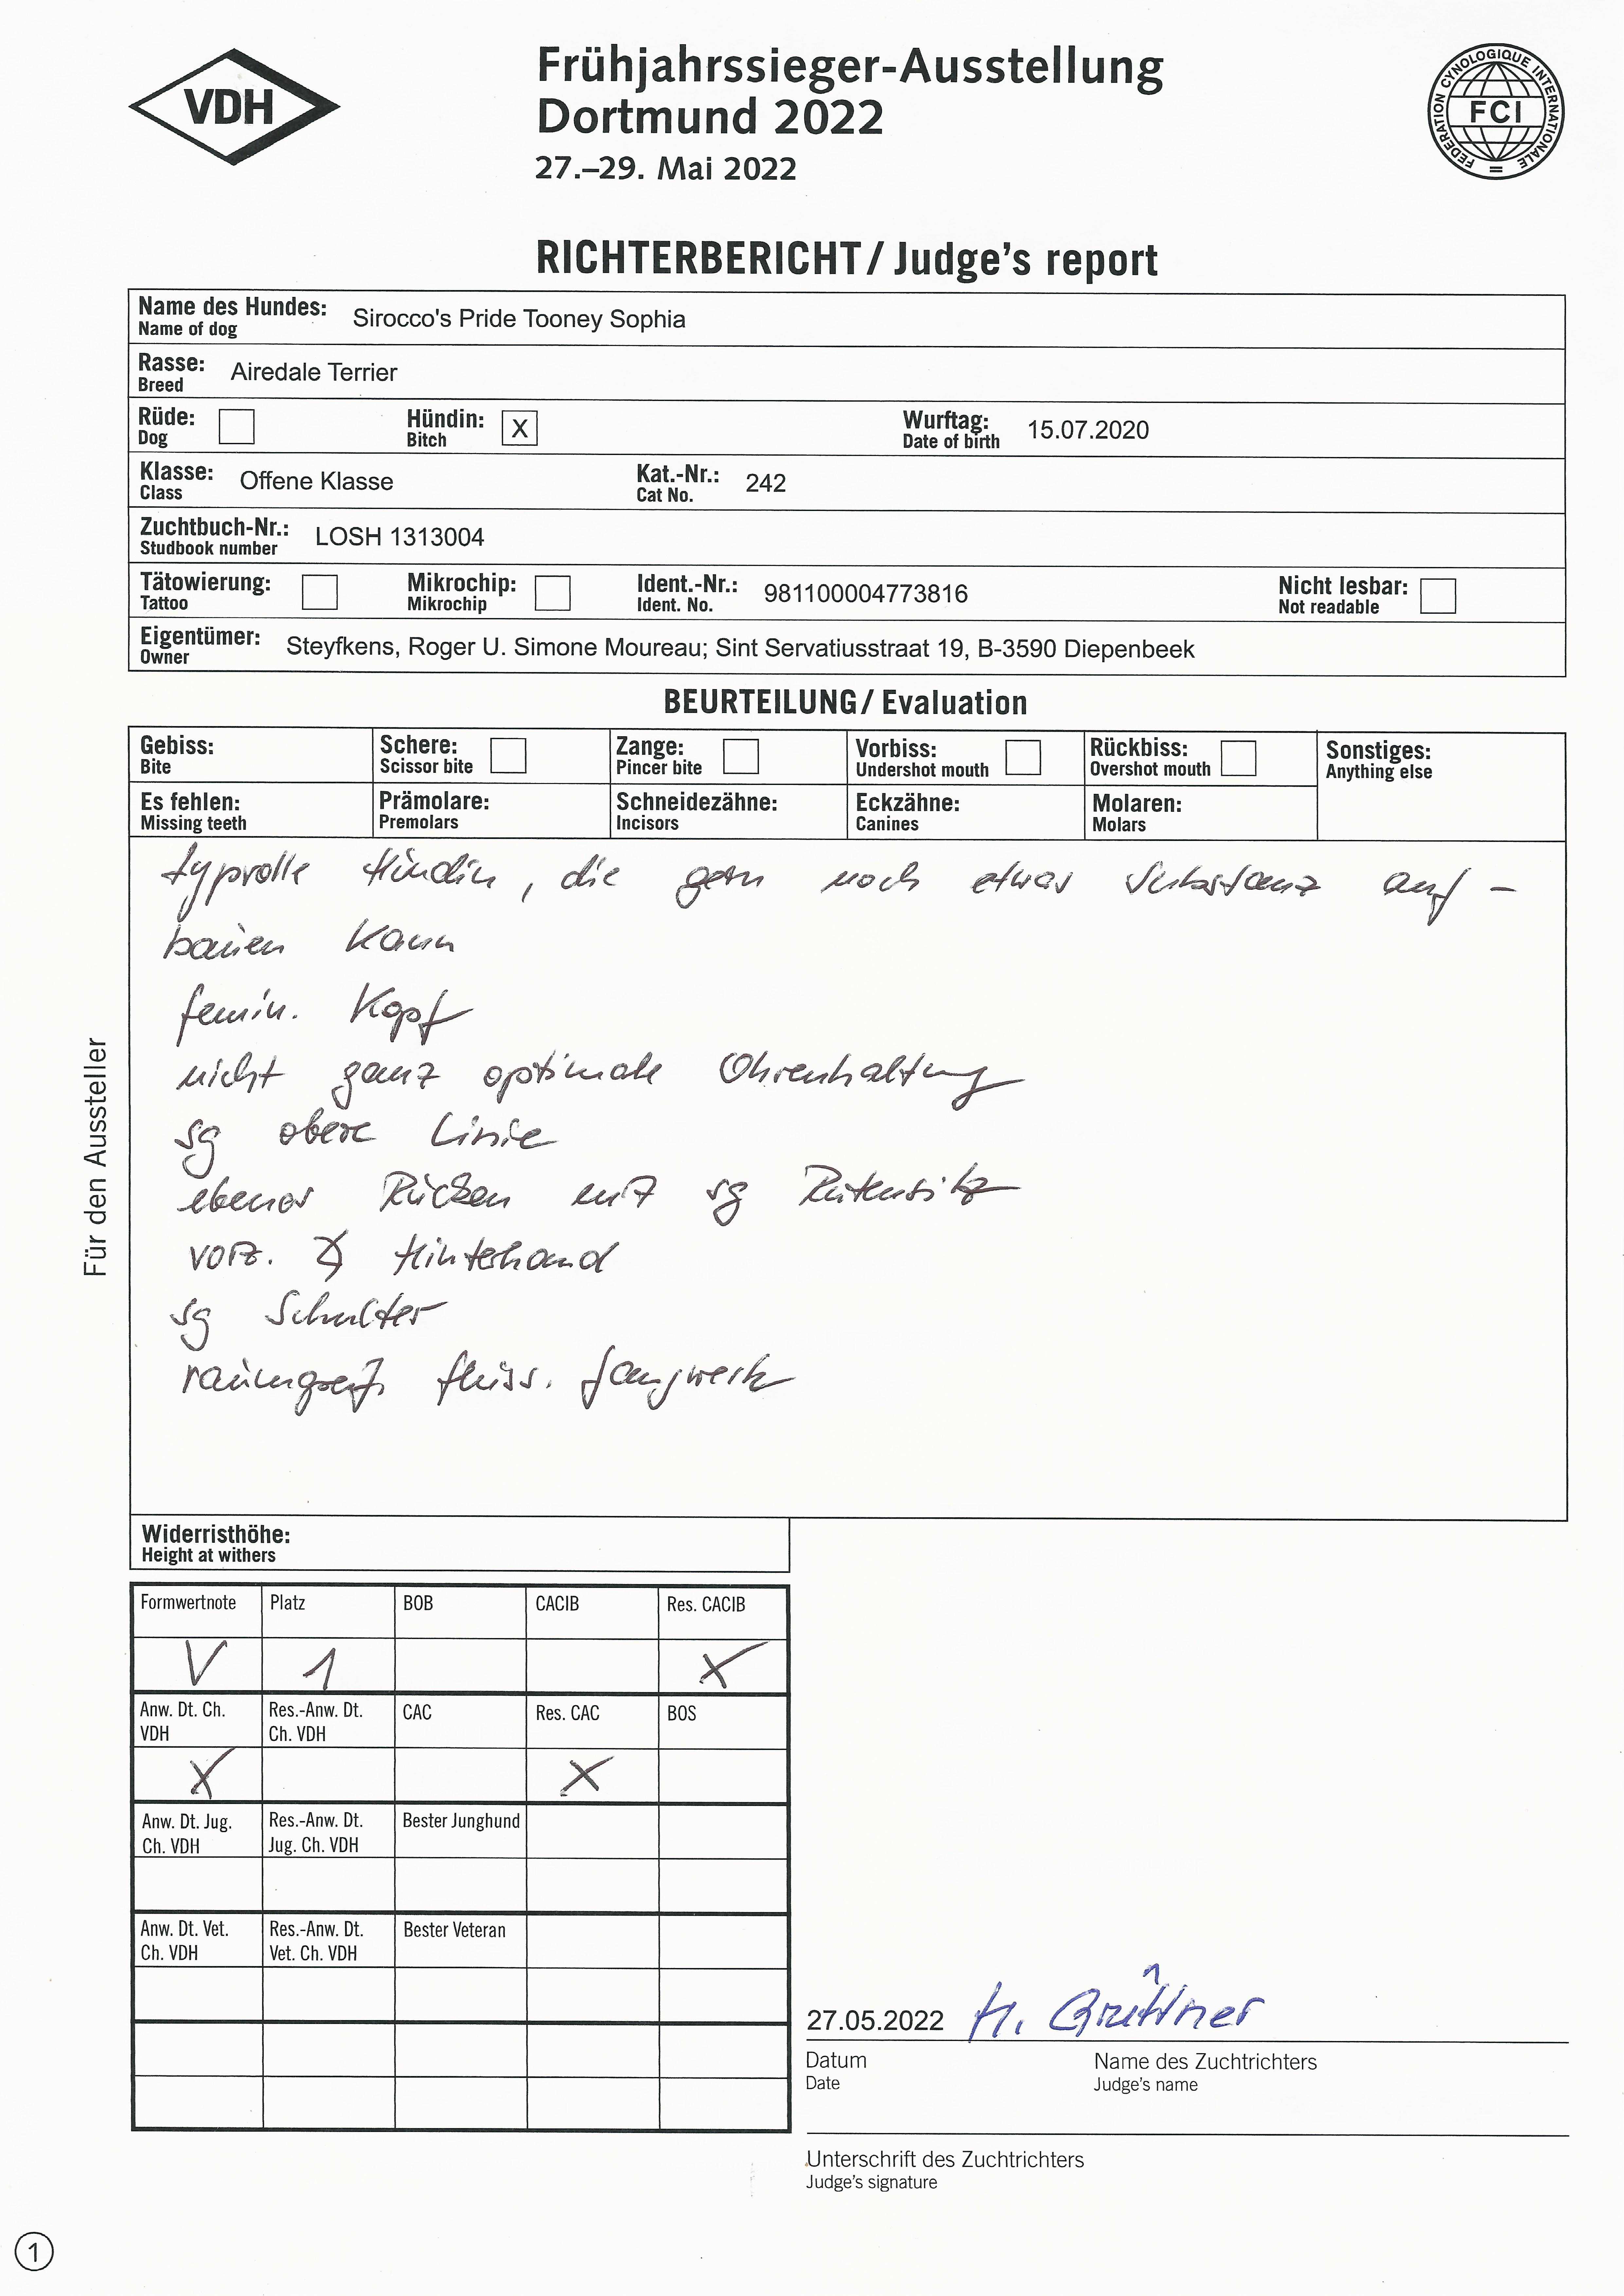 VDH
Frühjahrssieger-Ausstellung
Dortmund 2022
27.–29. Mai 2022
FEDERATION CYNOLOGIQUE INTERNATIONALE
FCI
RICHTERBERICHT / Judge's report
Name des Hundes: Sirocco's Pride Tooney Sophia
Name of dog
Rasse: Airedale Terrier
Breed
Rüde: Hündin: X Wurftag: 15.07.2020
Dog Bitch Date of birth
Klasse: Offene Klasse Kat.-Nr.: 242
Class Cat No.
Zuchtbuch-Nr.: LOSH 1313004
Studbook number
Tätowierung: Mikrochip: Ident.-Nr.: 981100004773816 Nicht lesbar:
Tattoo Mikrochip Ident. No. Not readable
Eigentümer: Steyfkens, Roger U. Simone Moureau; Sint Servatiusstraat 19, B-3590 Diepenbeek
Owner
BEURTEILUNG / Evaluation
Gebiss: Schere: Zange: Vorbiss: Rückbiss: Sonstiges:
Bite Scissor bite Pincer bite Undershot mouth Overshot mouth Anything else
Es fehlen: Prämolare: Schneidezähne: Eckzähne: Molaren:
Missing teeth Premolars Incisors Canines Molars
typvolle Hündin, die gern noch etwas Substanz auf-
bauen kann
femin. Kopf
nicht ganz optimale Ohrenhaltung
sg obere Linie
ebener Rücken mit sg Rutensitz
vorz. ∡ Hinterhand
sg Schulter
raumgreif. flüss. Gangwerk
Für den Aussteller
Widerristhöhe:
Height at withers
Formwertnote Platz BOB CACIB Res. CACIB
V 1 X
Anw. Dt. Ch. Res.-Anw. Dt. CAC Res. CAC BOS
VDH Ch. VDH
X X
Anw. Dt. Jug. Res.-Anw. Dt. Bester Junghund
Ch. VDH Jug. Ch. VDH
Anw. Dt. Vet. Res.-Anw. Dt. Bester Veteran
Ch. VDH Vet. Ch. VDH
27.05.2022 H. Grüttner
Datum Name des Zuchtrichters
Date Judge's name
Unterschrift des Zuchtrichters
Judge's signature
1